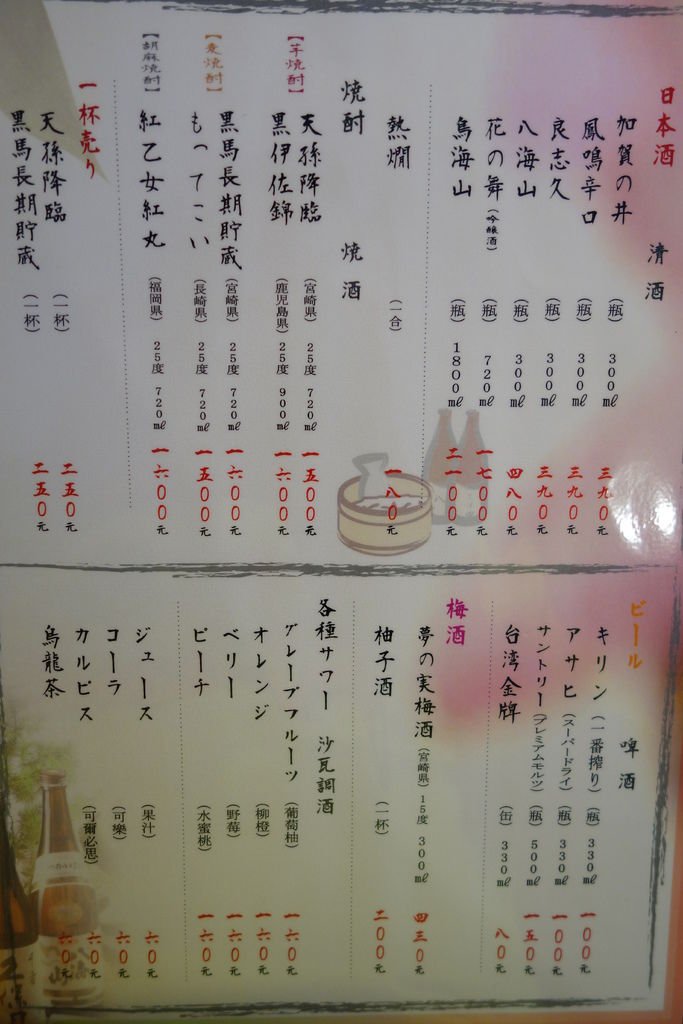 日本酒 清酒
加賀の井 （瓶） 300㎖ 三九0元
鳳鳴辛口 （瓶） 300㎖ 三九0元
良志久 （瓶） 300㎖ 三九0元
八海山 （瓶） 300㎖ 四八0元
花の舞（吟醸酒） （瓶） 720㎖ 一七00元
鳥海山 （瓶） 1800㎖ 二一00元
熱燗 （一合） 一八0元
焼酎 焼酒
【芋焼酎】
天孫降臨 （宮崎県） 25度 720㎖ 一五00元
黒伊佐錦 （鹿児島県） 25度 900㎖ 一六00元
【麦焼酎】
黒馬長期貯蔵 （宮崎県） 25度 720㎖ 一六00元
もってこい （長崎県） 25度 720㎖ 一五00元
【胡麻焼酎】
紅乙女紅丸 （福岡県） 25度 720㎖ 一六00元
一杯売り
天孫降臨 （一杯） 二五0元
黒馬長期貯蔵 （一杯） 二五0元
ビール 啤酒
キリン（一番搾り） （瓶） 330㎖ 一00元
アサヒ（スーパードライ） （瓶） 330㎖ 一00元
サントリー（プレミアムモルツ） （瓶） 500㎖ 一五0元
台湾金牌 （缶） 330㎖ 八0元
梅酒
夢の実梅酒 （宮崎県） 15度 300㎖ 四三0元
柚子酒 （一杯） 二00元
各種サワー 沙瓦調酒
グレープフルーツ （葡萄柚） 一六0元
オレンジ （柳橙） 一六0元
ベリー （野莓） 一六0元
ピーチ （水蜜桃） 一六0元
ジュース （果汁） 六0元
コーラ （可樂） 六0元
カルピス （可爾必思） 六0元
烏龍茶 六0元